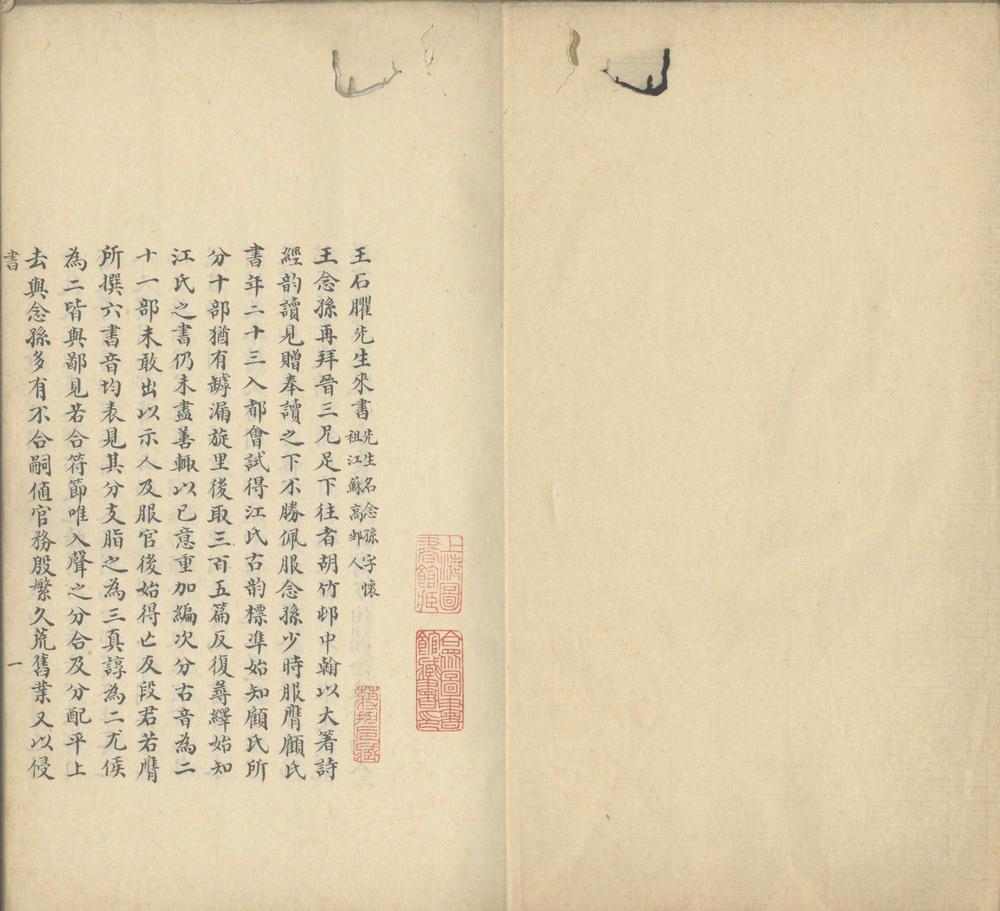 王石臞先生來書先生名念孫字懷祖江蘇高郵人
王念孫再拜晉三兄足下往者胡竹邨中翰以大箸詩
經韵讀見贈奉讀之下不勝佩服念孫少時服膺顧氏
書年二十三入都會試得江氏古韵標準始知顧氏所
分十部猶有罅漏旋里後取三百五篇反復尋繹始知
江氏之書仍未盡善輒以已意重加編次分古音為二
十一部未敢出以示人及服官後始得亡友段君若膺
所撰六書音均表見其分支脂之為三真諄為二尤侯
為二皆與鄙見若合符節唯入聲之分合及分配平上
去與念孫多有不合嗣值官務殷繁久荒舊業又以侵
書
一
上海圖書館藏
合眾圖書館藏書印